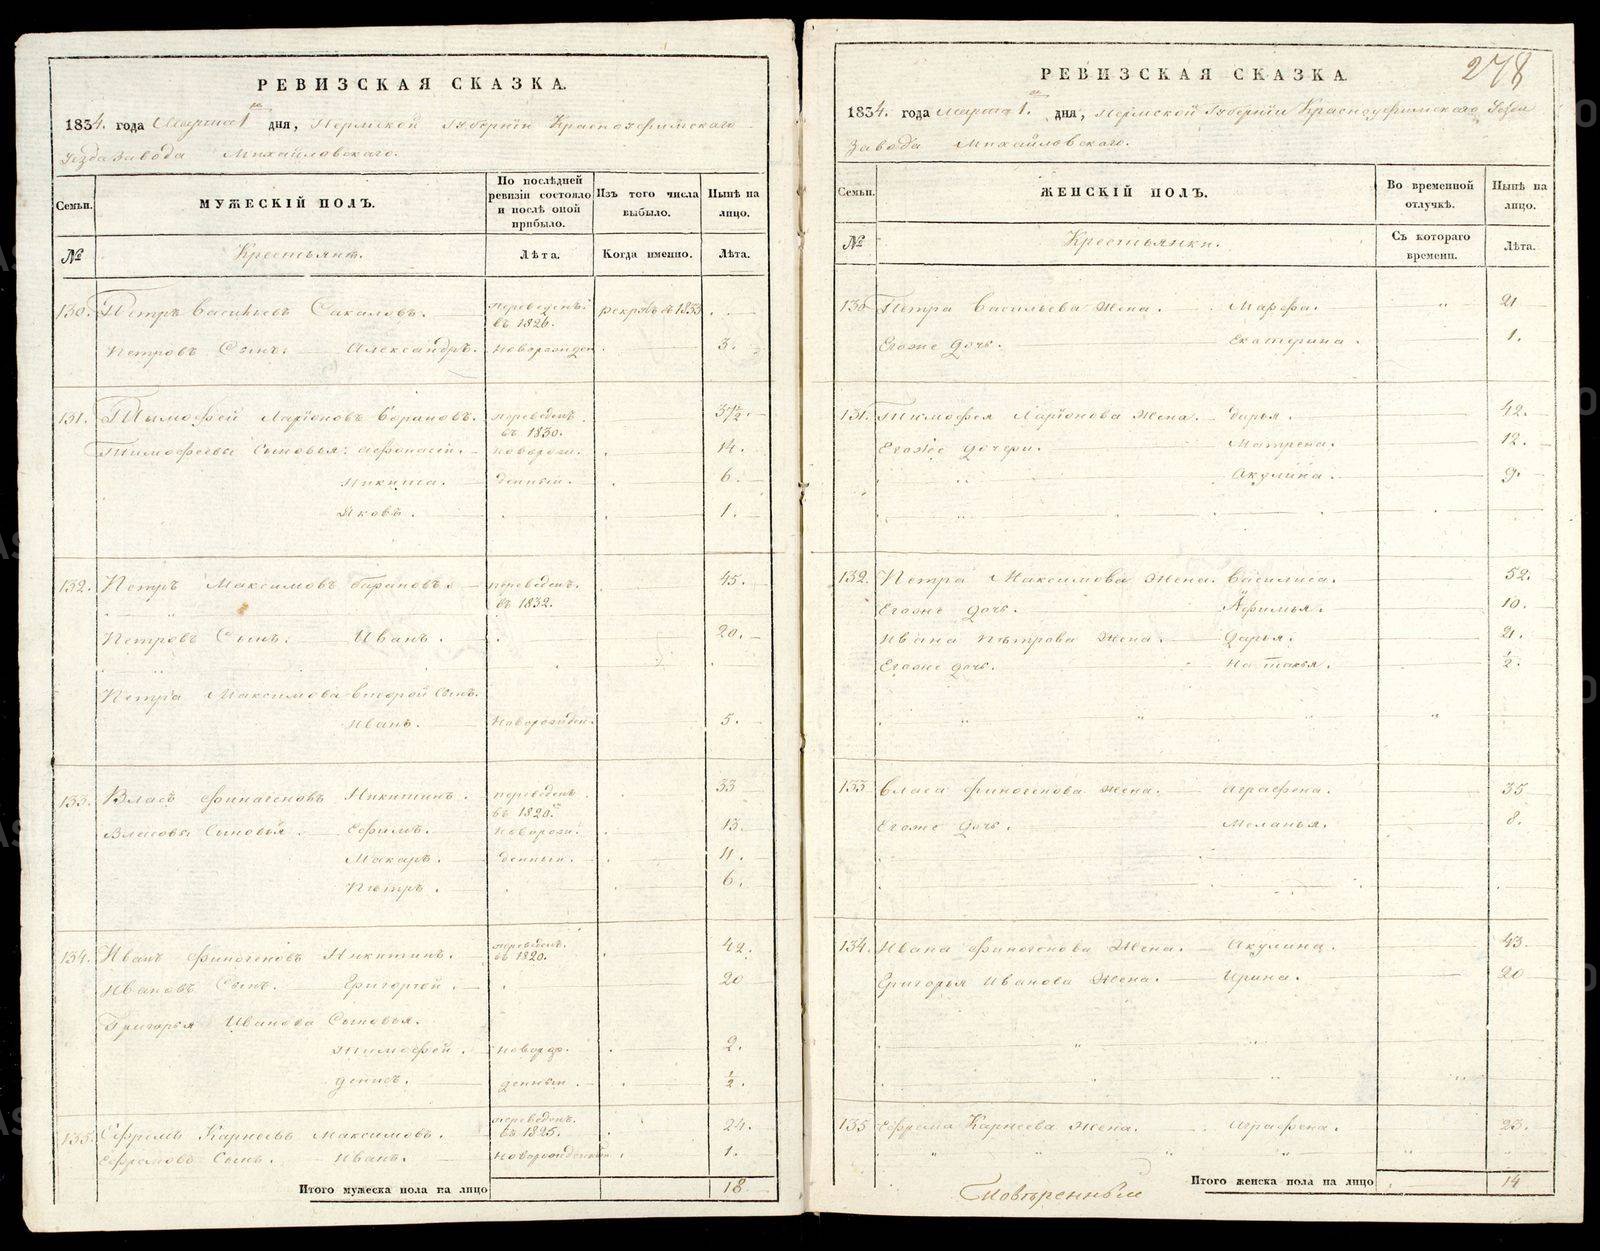 РЕВИЗСКАЯ СКАЗКА.
1834. года Марта 1го дня, Пермской Губернiи Красноуфимскаго
Уезда Завода Михайловскаго.
Семьи. МУЖЕСКIЙ ПОЛЪ. По послѣдней ревизiи состояло и послѣ оной прибыло. Изъ того числа выбыло. Нынѣ на лицо.
№ Крестьянъ. Лѣта. Когда именно. Лѣта.
130. Петръ Васильевъ Сакаловъ. переведенъ въ 1826. рекрутъ въ 1833
Петровъ Сынъ. Александръ. новорожден 3.
131. Тымофей Ларiоновъ Барановъ. переведенъ въ 1830. 37½.
Тимофеевы Сыновья: Афонасiй. новорож. 14.
Никита. денный. 6.
Яковъ. 1.
132. Петръ Максимовъ барановъ. переведенъ. въ 1832. 45.
Петровъ Сынъ. Иванъ. 20.
Петра Максимова второй Сынъ.
Иванъ. Новорожден. 5.
133. Власъ финагеновъ Никитинъ. переведенъ въ 1820. 33
Власовы Сыновья. Ефимъ. новорож. 13.
Макаръ. денный. 11.
Петръ. 6.
134. Иванъ финогеновъ Никитинъ. переведенъ. въ 1820. 42.
Ивановъ Сынъ. Григорiй. 20
Григорья Иванова Сыновья.
Тимофей. новорож. 2.
денисъ. денный. ½.
135. Ефремъ Карнеевъ Максимовъ. переведенъ. въ 1825. 24.
Ефремовъ Сынъ. Иванъ. Новорожденный. 1.
Итого мужеска пола на лицо 18
278
РЕВИЗСКАЯ СКАЗКА.
1834. года Марта 1. го дня, Пермской Губернiи Красноуфимскаго Уезда
Завода Михайловскаго.
Семьи. ЖЕНСКIЙ ПОЛЪ. Во временной отлучкѣ. Нынѣ на лицо.
№ Крестьянки. Съ котораго времени. Лѣта.
130 Петра Васильева жена. Марфа. 21
Егоже дочь. Екатерина. 1.
131. Тимофея Ларiонова жена. дарья. 42.
Егоже дочери. Матрена. 12.
Акулина. 9.
132. Петра Максимова жена. Василиса. 52.
Егоже дочь. Афимья. 10.
Ивана Петрова жена. дарья. 21.
Егоже дочь. Наталья. ½.
133 Власа финогенова жена. аграфена. 35
Егоже дочь. Меланья. 8.
134. Ивана финогенова жена. Акулина. 43.
Григорья Иванова жена. Ирина. 20
135 Ефрема Карнеева жена. Аграфена. 23.
Итого женска пола на лицо 14
Повѣренный